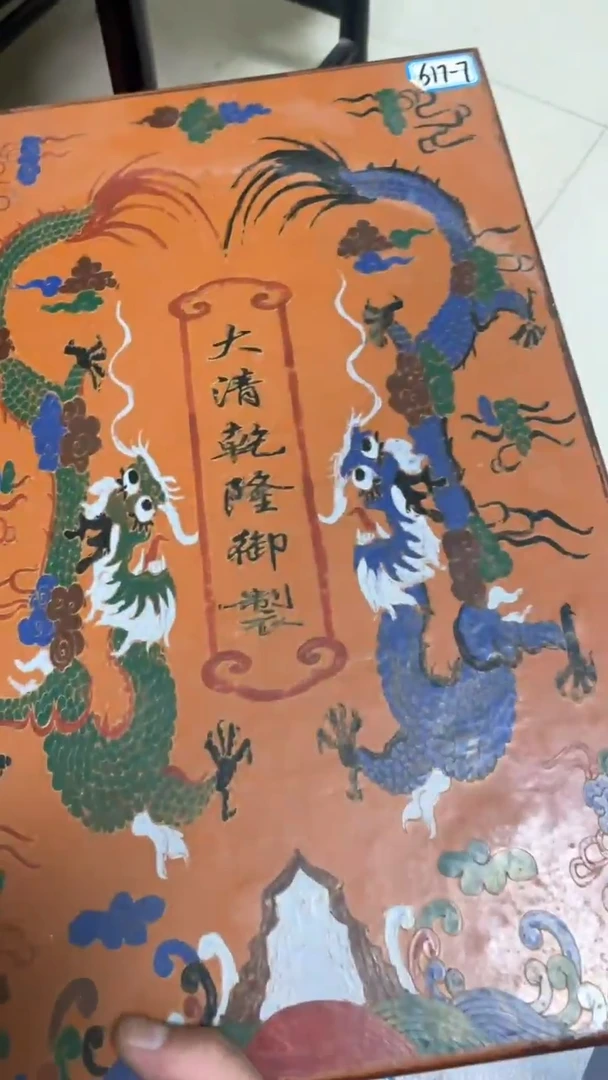 617-7
大清乾隆御製